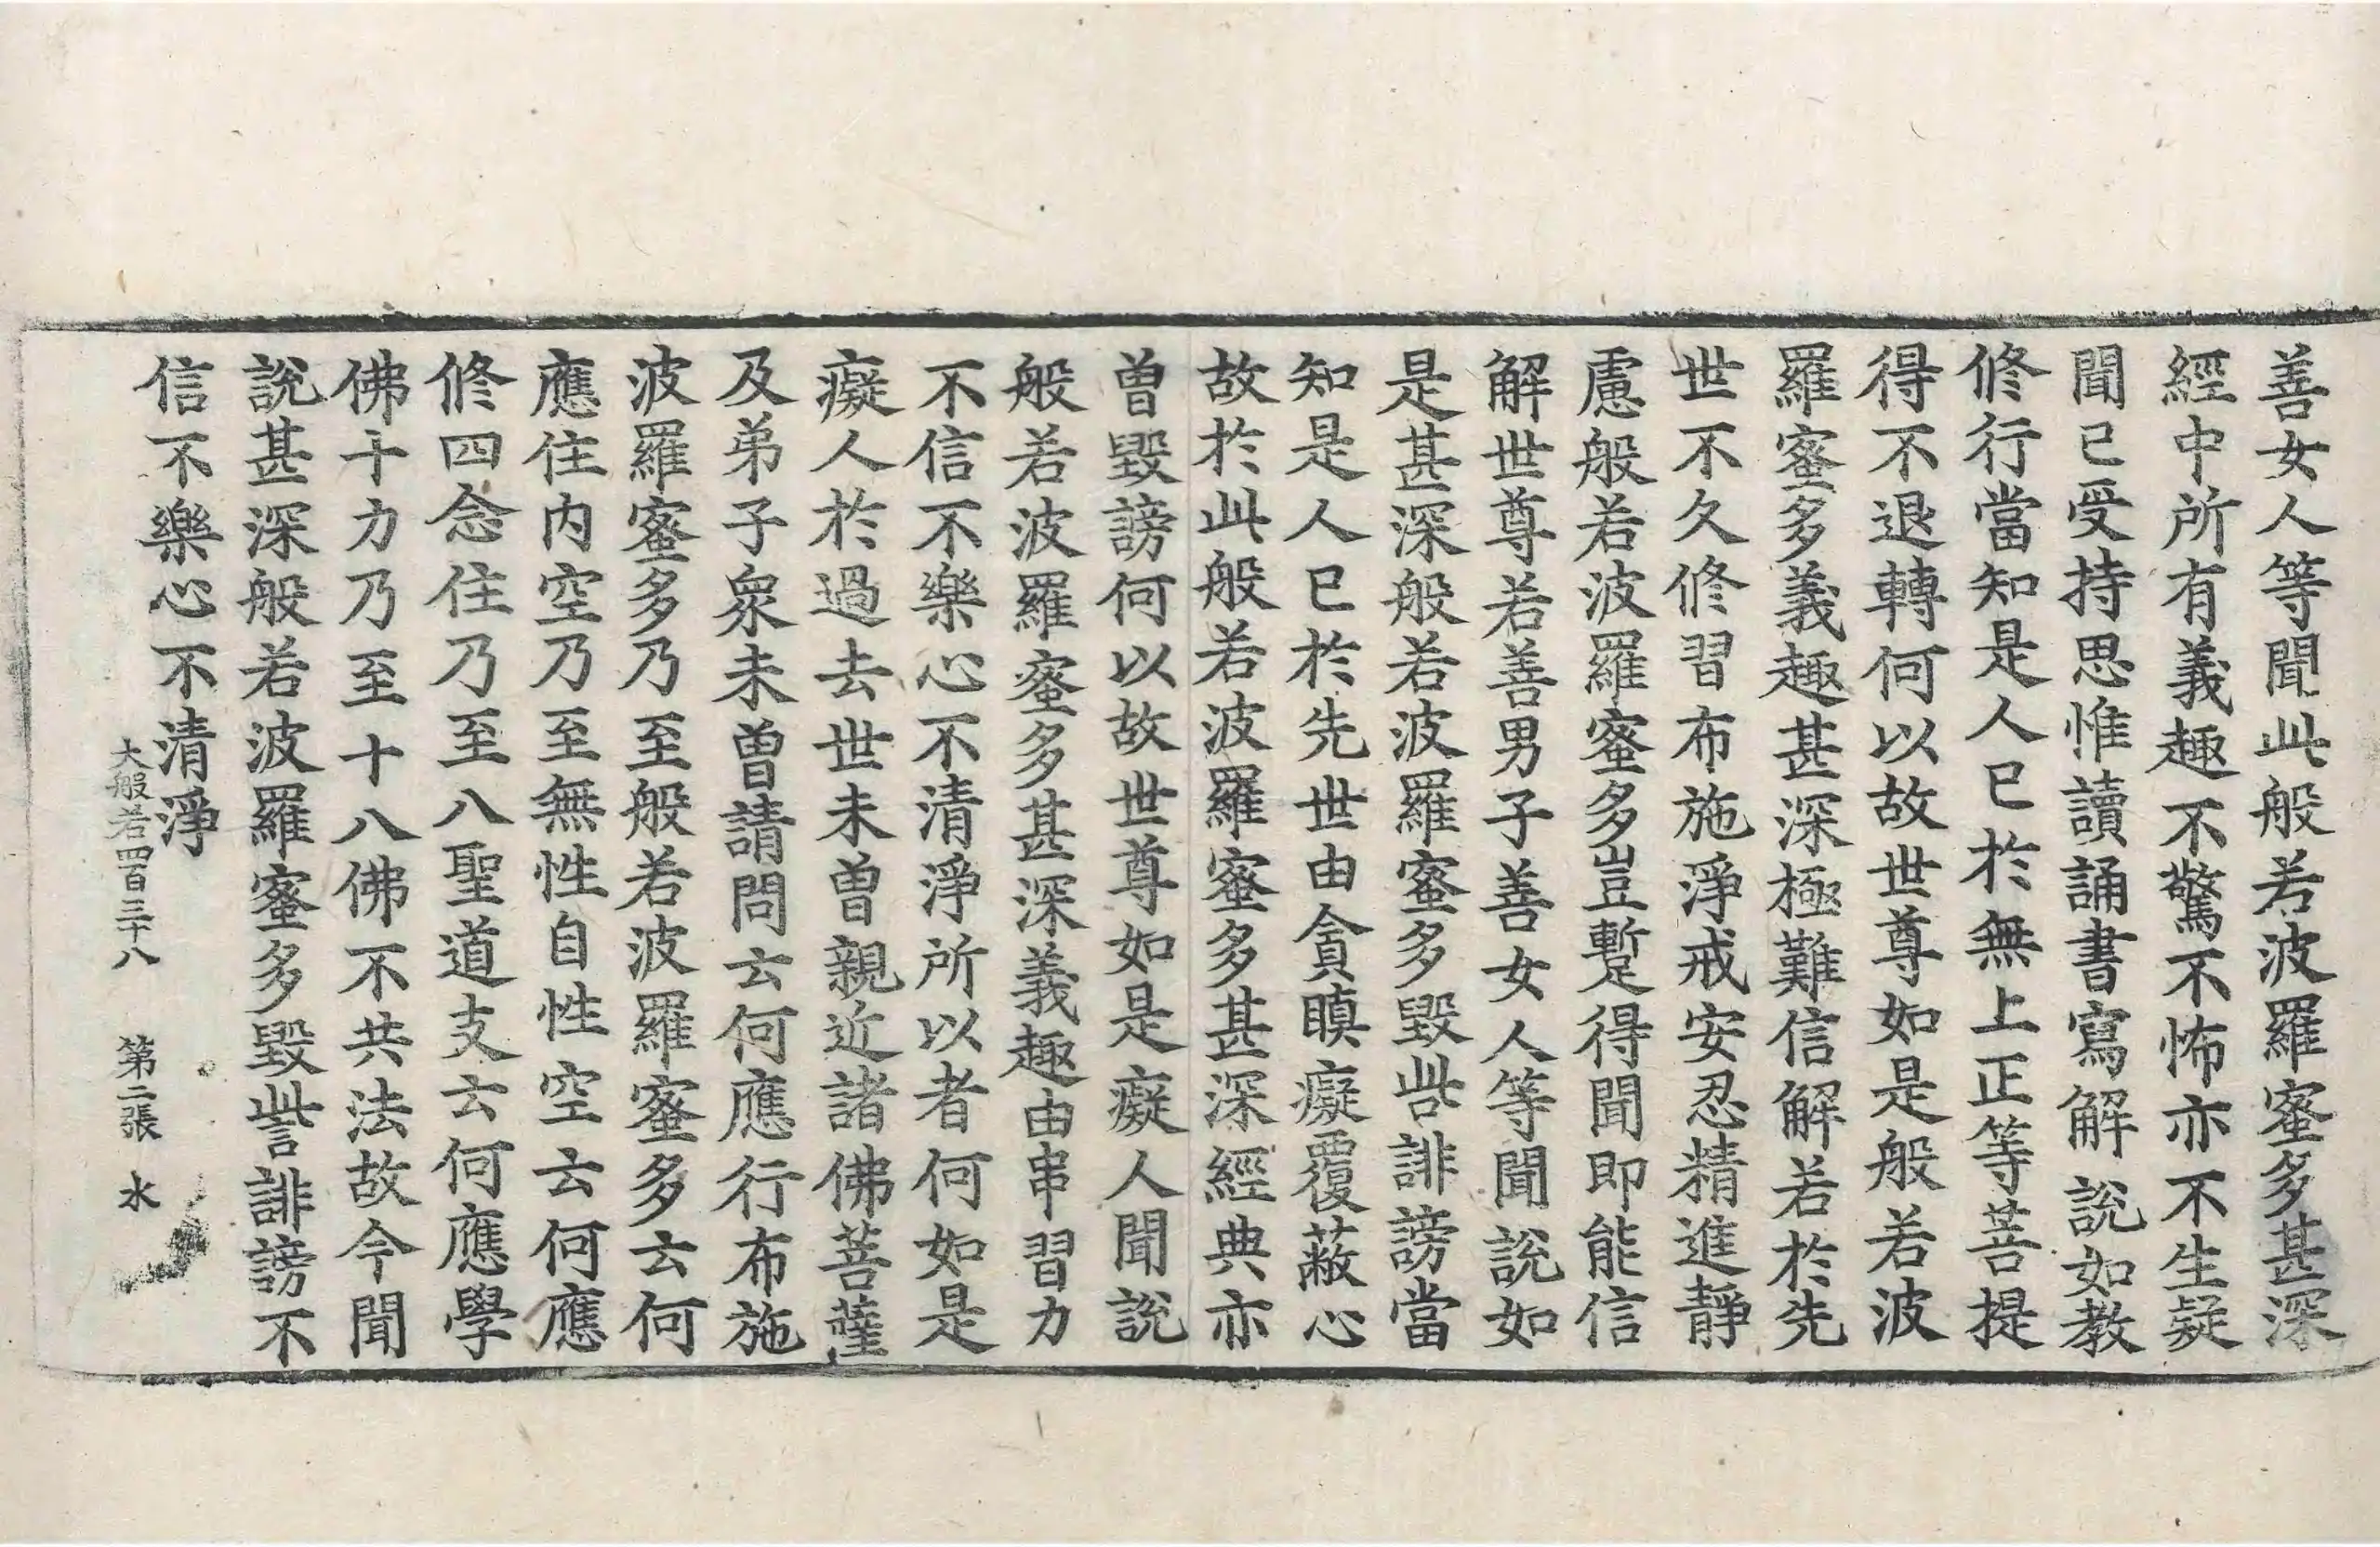 善女人等聞此般若波羅蜜多甚深
經中所有義趣不驚不怖亦不生疑
聞已受持思惟讀誦書寫解說如教
修行當知是人已於無上正等菩提
得不退轉何以故世尊如是般若波
羅蜜多義趣甚深極難信解若於先
世不久修習布施淨戒安忍精進靜
慮般若波羅蜜多豈暫得聞即能信
解世尊若善男子善女人等聞說如
是甚深般若波羅蜜多毀呰誹謗當
知是人已於先世由貪瞋癡覆蔽心
故於此般若波羅蜜多甚深經典亦
曾毀謗何以故世尊如是癡人聞說
般若波羅蜜多甚深義趣由串習力
不信不樂心不清淨所以者何如是
癡人於過去世未曾親近諸佛菩薩
及弟子眾未曾請問云何應行布施
波羅蜜多乃至般若波羅蜜多云何
應住內空乃至無性自性空云何應
修四念住乃至八聖道支云何應學
佛十力乃至十八佛不共法故今聞
說甚深般若波羅蜜多毀訾誹謗不
信不樂心不清淨
大般若四百三十八 第二張 水